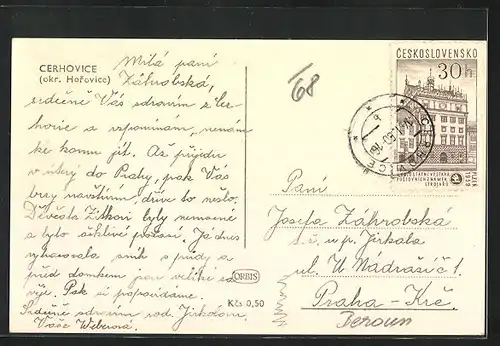 CERHOVICE
(okr. Hořovice)
Milá paní
Záhrobská,
srdečně Vás zdravím z Cer-
hovic a vzpomínám, nemám
ke komu jít. Až přijedu
v úterý do Prahy, pak Vás
brzy navštívím, dřív to nešlo.
Děvčata Zítkovi byly nemocné
a bylo ošklivé počasí. Já dnes
sníh s půdy a
před domkem jsou veliké
Pak si popovídáme.
Srdečně zdravím rod. Jirkalovu
Vaše Weberová.
ORBIS
Kčs 0,50
68
ČESKOSLOVENSKO
30 h
PLZEŇ
1959
CERHOVICE
Paní
Josefa Záhrobská
u p. Jirkala
ul. U Nádražíč 1
Praha-Krč
Beroun